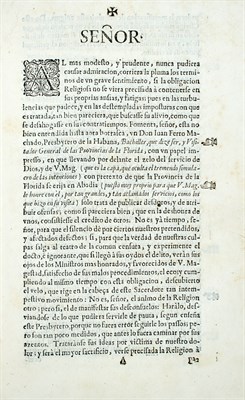 SEÑOR.
AL mas modesto, y prudente, nunca pudiera
causar admiracion, corriera la pluma los termi-
nos de vn grave sentimiento, si la obligacion
Religiosa no se viera precisada à contenerse en
sus proprias ansias, y fatigas: pues en las turbu-
lencias que padece, y en las destempladas imposturas con que
es tratada, no bien pareciera, que buscasse su alivio, como que
se desahogasse en sus contratiempos. Fomenta, señor, esta no
bien entendida hasta aora borrasca, vn Don Iuan Ferro Ma-
chado, Presbytero de la Habana, Bachiller, que dize ser, y Visi-
tador General de las Provincias de la Florida, con vn papel im-
presso, en que llevando por delante el zelo del servicio de
Dios, y de V. Mag.
con pretexto de que la Provincia
de la Florida se erija en Abadia
solo trata de publicar desdoros, y de atri-
buir ofensas, como si pareciera bien, que en la deshonra de
vnos, consistiesse el credito de otros. No es ya tiempo, se-
ñor, para que el silencio de por ciertos nuestros pretendidos,
y afectados defectos; si, para que la verdad de nuestras cul-
pas salga al teatro de la comun censura, y experimente el
docto, è ignorante, que si llegò à sus oydos el delito, veràn sus
ojos de los Ministros mas honrados, y favorecidos de V. Ma-
gestad, satisfecho de sus malos procedimientos, el ceño; y cum-
pliendo al mismo tiempo con esta obligacion, descubierto
el velo, que erige en la cabeça de este Sacerdote tan intem-
pestivo movimiento: No es, señor, el animo de la Religion
otro; pero si, el de manifestar sus desconsuelos: Haràlo, desvian-
dose de lo que pudiere servirle de pauta, segun enseña
este Presbytero, porque no fuera error seguirle los passos: pe-
ro son tan poco medidos, que antes lo fuera caminar por sus
arentos. Trataránse sus ideas por victima de nuestro do-
lor: y serà el mayor sacrificio, verse precisada la Religion à